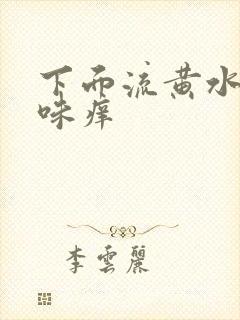 下面流黄水
味痒
李雲麗